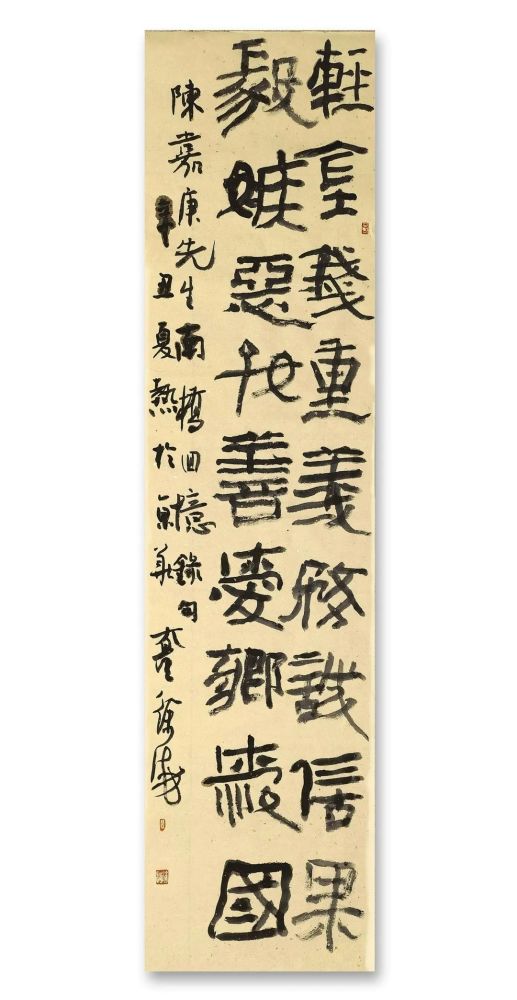 輕金錢重義務誠信果
毅嫉惡好善愛鄉愛國
陳嘉庚先生南橋回憶錄句
辛丑夏熱於京華